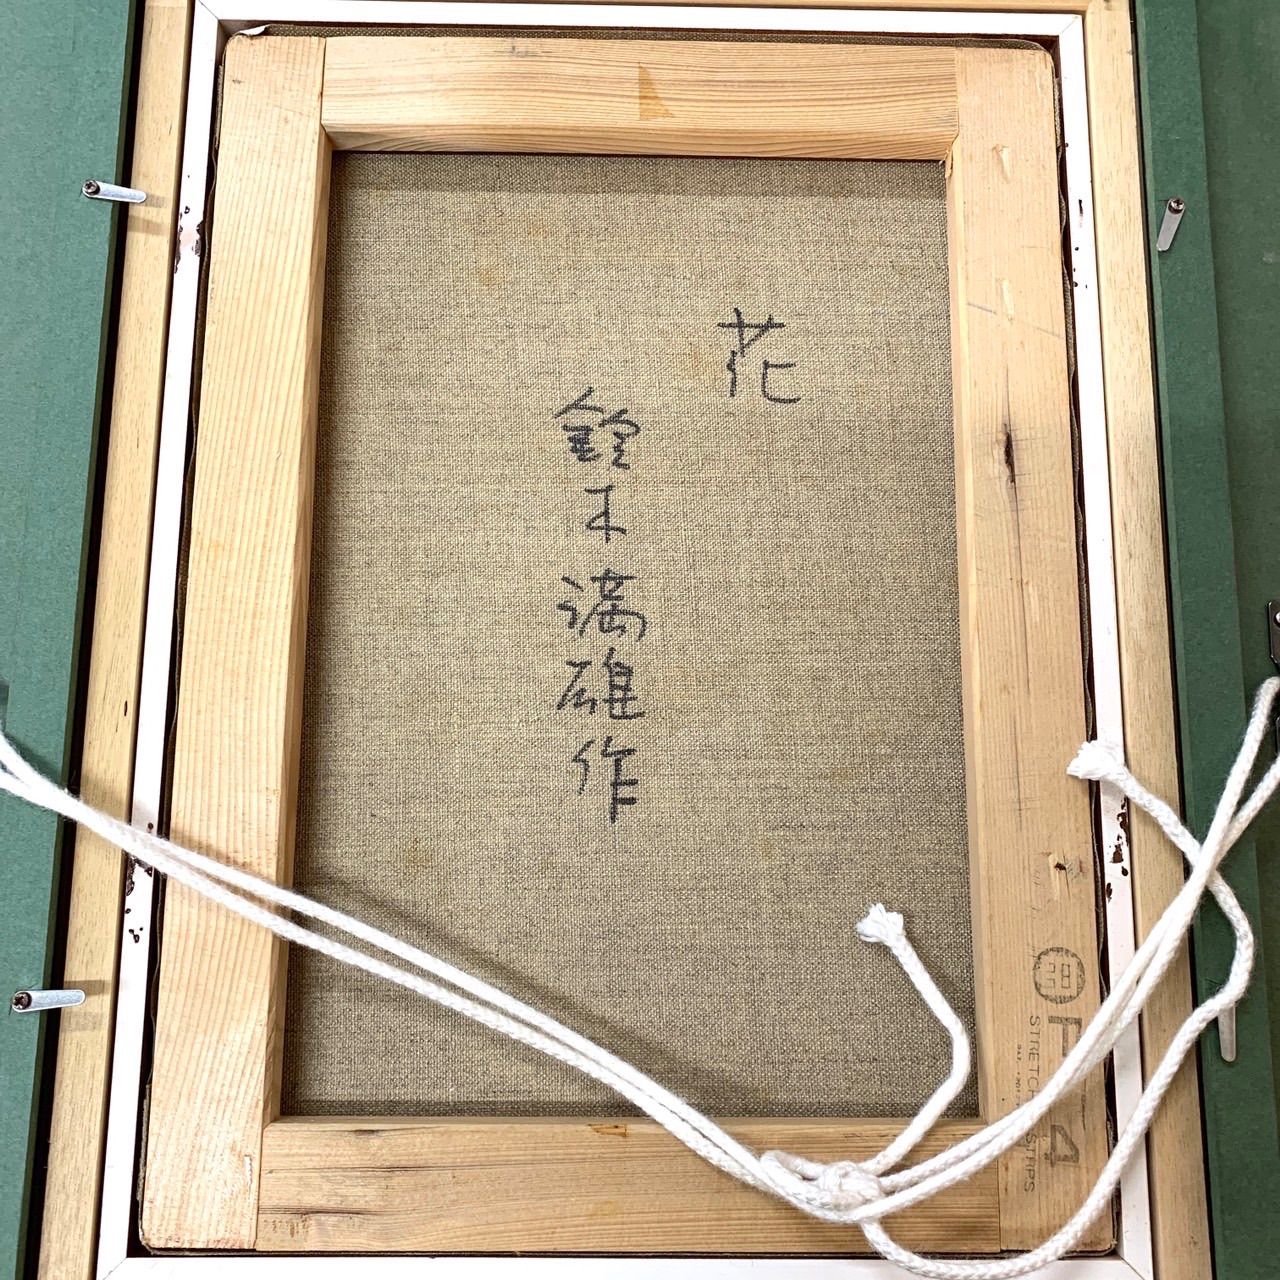 花
鈴木満雄作
F4
STRETCH STRPS